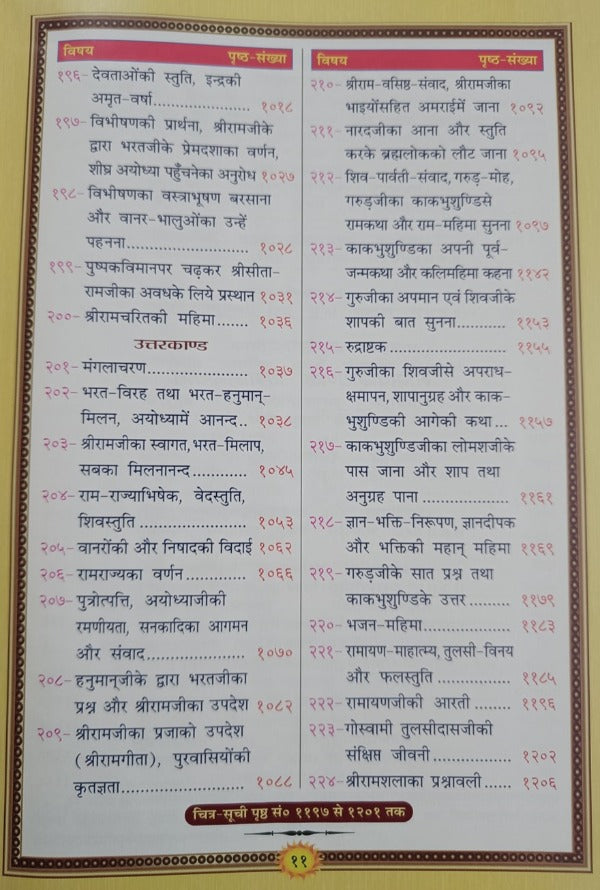 विषय पृष्ठ-संख्या
१९६- देवताओंकी स्तुति, इन्द्रकी
अमृत-वर्षा...................... १०१८
१९७- विभीषणकी प्रार्थना, श्रीरामजीके
द्वारा भरतजीके प्रेमदशाका वर्णन,
शीघ्र अयोध्या पहुँचनेका अनुरोध १०२७
१९८- विभीषणका वस्त्राभूषण बरसाना
और वानर-भालुओंका उन्हें
पहनना............................ १०२८
१९९- पुष्पकविमानपर चढ़कर श्रीसीता-
रामजीका अवधके लिये प्रस्थान १०३१
२००- श्रीरामचरितकी महिमा....... १०३६
उत्तरकाण्ड
२०१- मंगलाचरण....................... १०३७
२०२- भरत-विरह तथा भरत-हनुमान्-
मिलन, अयोध्यामें आनन्द.. १०३८
२०३- श्रीरामजीका स्वागत, भरत-मिलाप,
सबका मिलनानन्द............ १०४५
२०४- राम-राज्याभिषेक, वेदस्तुति,
शिवस्तुति ........................ १०५३
२०५- वानरोंकी और निषादकी विदाई १०६२
२०६- रामराज्यका वर्णन............. १०६६
२०७- पुत्रोत्पत्ति, अयोध्याजीकी
रमणीयता, सनकादिका आगमन
और संवाद...................... १०७०
२०८- हनुमान्‌जीके द्वारा भरतजीका
प्रश्न और श्रीरामजीका उपदेश १०८२
२०९- श्रीरामजीका प्रजाको उपदेश
(श्रीरामगीता), पुरवासियोंकी
कृतज्ञता............................ १०८८
विषय पृष्ठ-संख्या
२१०- श्रीराम-वसिष्ठ-संवाद, श्रीरामजीका
भाइयोंसहित अमराईमें जाना १०९२
२११- नारदजीका आना और स्तुति
करके ब्रह्मलोकको लौट जाना १०९५
२१२- शिव-पार्वती-संवाद, गरुड़-मोह,
गरुड़जीका काकभुशुण्डिसे
रामकथा और राम-महिमा सुनना १०९७
२१३- काकभुशुण्डिका अपनी पूर्व-
जन्मकथा और कलिमहिमा कहना ११४२
२१४- गुरुजीका अपमान एवं शिवजीके
शापकी बात सुनना............ ११५३
२१५- रुद्राष्टक ......................... ११५५
२१६- गुरुजीका शिवजीसे अपराध-
क्षमापन, शापानुग्रह और काक-
भुशुण्डिकी आगेकी कथा... ११५७
२१७- काकभुशुण्डिजीका लोमशजीके
पास जाना और शाप तथा
अनुग्रह पाना .................... ११६१
२१८- ज्ञान-भक्ति-निरूपण, ज्ञानदीपक
और भक्तिकी महान् महिमा ११६९
२१९- गरुड़जीके सात प्रश्न तथा
काकभुशुण्डिके उत्तर......... ११७९
२२०- भजन-महिमा.................... ११८३
२२१- रामायण-माहात्म्य, तुलसी-विनय
और फलस्तुति .................. ११८५
२२२- रामायणजीकी आरती ....... ११९६
२२३- गोस्वामी तुलसीदासजीकी
संक्षिप्त जीवनी.................. १२०२
२२४- श्रीरामशलाका प्रश्नावली...... १२०६
चित्र-सूची पृष्ठ सं० ११९७ से १२०१ तक
११